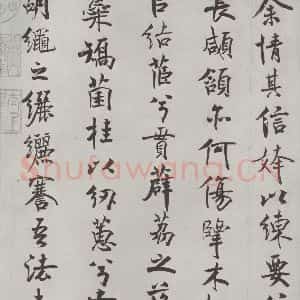 余情其信姱以練要
長顑頷亦何傷擥木
以結茝兮貫薜荔之
蕊矯菌桂以紉蕙兮
胡繩之纚纚謇吾法夫
Shufawang.CN